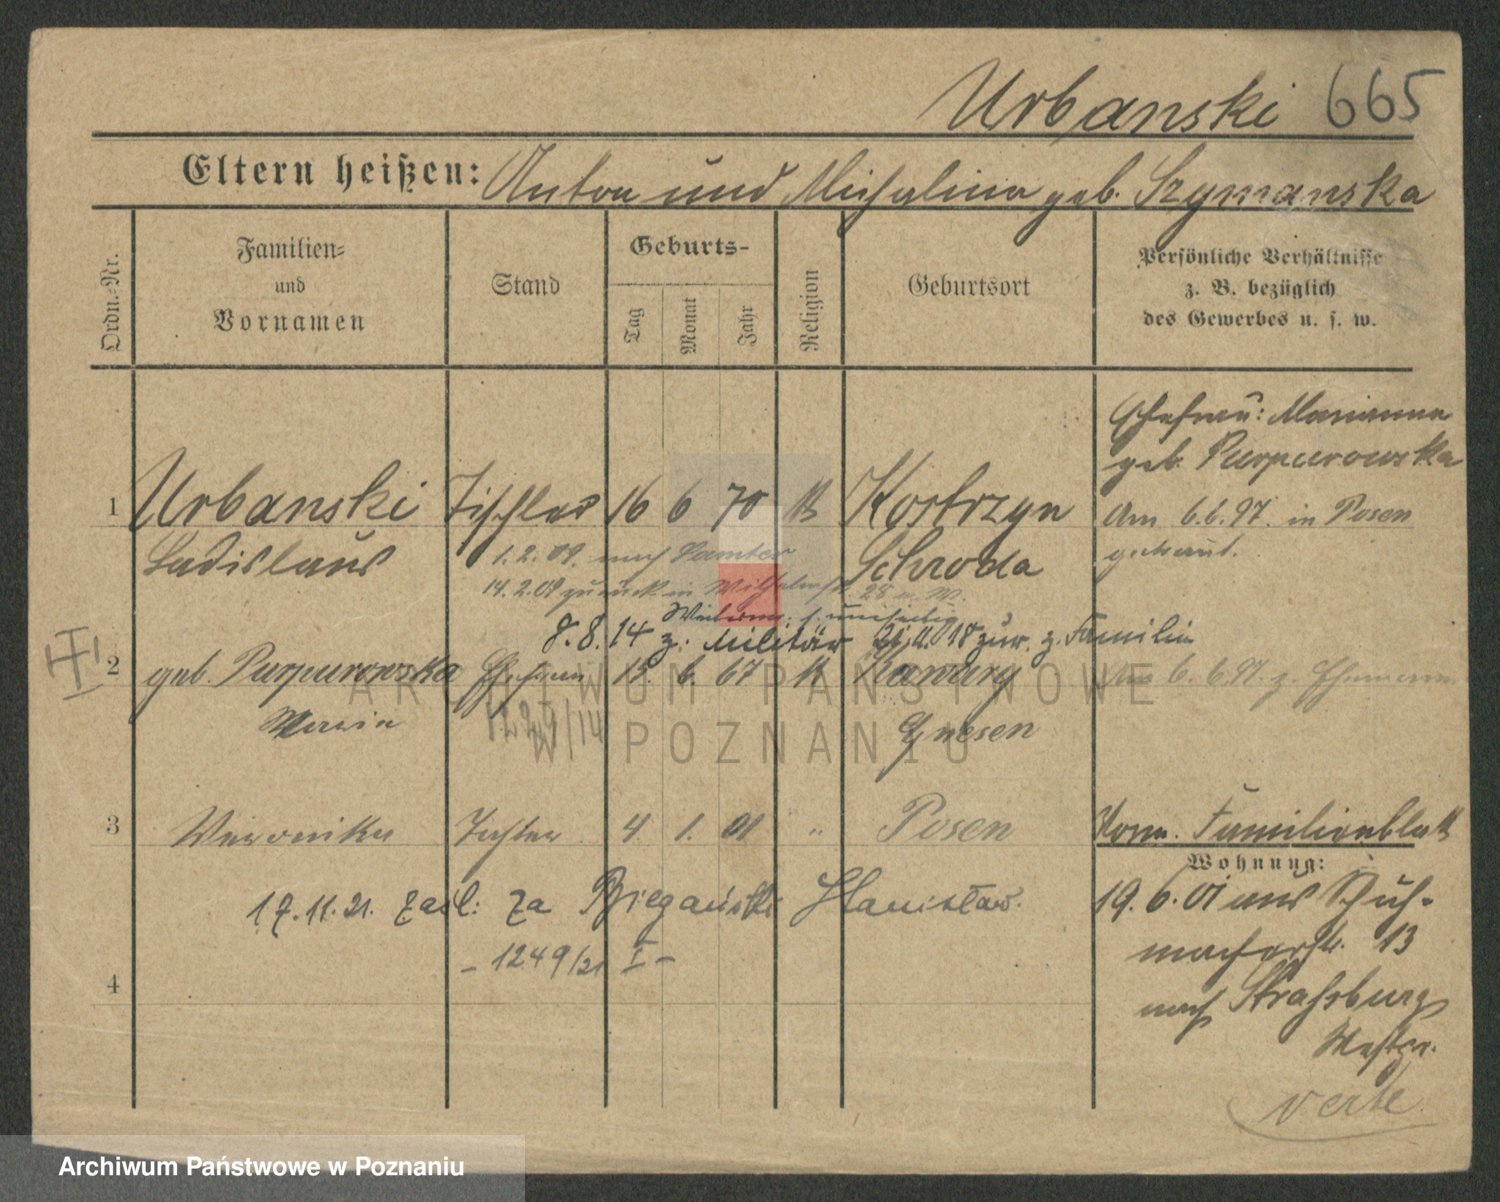 Urbanski 665
Eltern heißen: Anton und Michalina geb. Szymanska
Ordn.-Nr.
Familien- und Vornamen
Stand
Geburts-
Tag
Monat
Jahr
Religion
Geburtsort
Persönliche Verhältnisse
z. B. bezüglich
des Gewerbes u. s. w.
Ehefrau: Marianna
geb. Purpurowska
1 Urbanski Tischler 16 6 70 k Kostrzyn
Am 6.6.97. in Posen
getraut.
Ladislaus
1.2.09. nach Samter
Schroda
14.2.09 zurück in 28
8.8.14 z. Militär 21.11.18 zur. z. Familie
2 geb. Purpurowska Ehefrau 15. 6. 67 k
6.6.97. z. Ehemann
Maria
Gnesen
3 Veronika Tochter 4. 1. 01 " Posen
Vom. Familienblatt
Wohnung:
17.11.21. zaśl: za Biegański Stanisław.
19.6.01 aus Schuh-
macherstr. 13
- 1249/21 I -
4
nach Strasburg
Westpr.
verte
ARCHIWUM PAŃSTWOWE
W POZNANIU
Archiwum Państwowe w Poznaniu